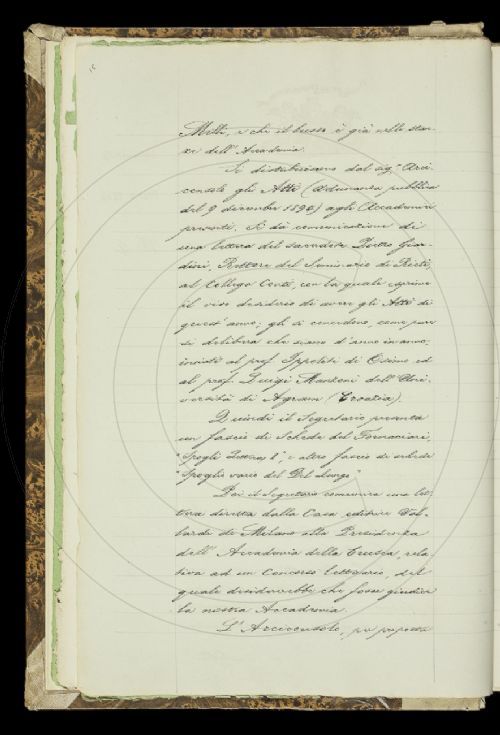 Milli, e che il busto è già nelle stan-
ze dell'Accademia.
Si distribuiscono dal sig.r Arci-
console gli Atti (Adunanza pubblica
del 9 dicembre 1890) agli Accademici
presenti. Si dà comunicazione di
una lettera del sacerdote Pietro
Rettore del Seminario di
al Collega Conti, con la quale esprime
il vivo desiderio di avere gli Atti di
quest'anno; gli si concedono, come pure
si delibera che siano d'anno in anno
inviati al prof. Ippoliti di Osimo ed
al prof. Luigi Manzoni dell'Uni-
versità di Agram (Croazia).
Quindi il Segretario presenta
un fascio di Schede del Fornaciari,
"Spogli e altro fascio di schede
"Spoglio vario del Del Lungo"
Poi il Segretario comunica una let-
tera diretta dalla Casa editrice Val-
lardi di Milano alla Presidenza
dell'Accademia della Crusca, rela-
tiva ad un Concorso letterario, del
quale desidererebbe che fosse giudice
la nostra Accademia.
L'Arciconsolo, per proposta